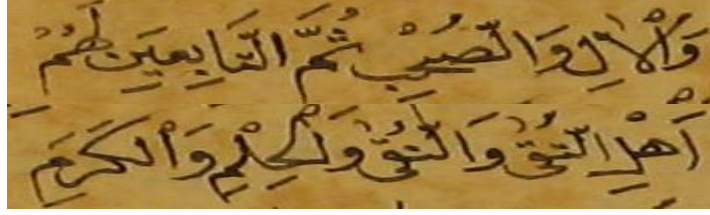 وَالْاٰلِ وَالصَّحْبِ ثُمَّ التَّابِعِينَ لَهُمْ
أَهْلِ التُّقٰى وَالنُّقٰى وَالْحِلْمِ وَالْكَرَمِ